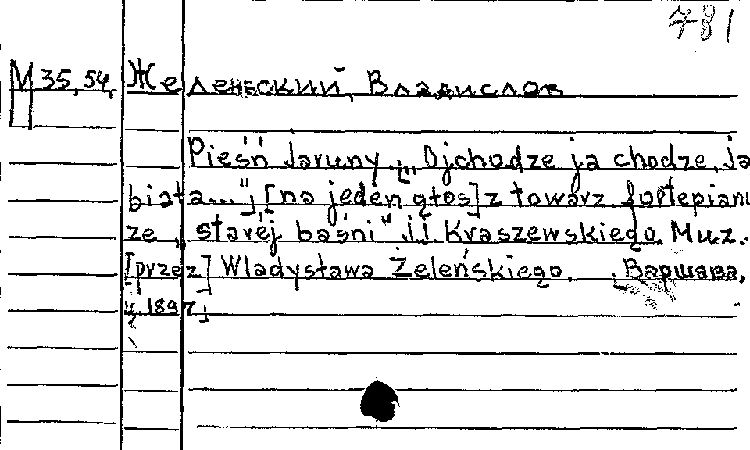 781
М 35, 54, Желенский, Владислав
Pieśń Jaruny „Ojchodze ja chodze, ja
biała..." [na jeden głos] z towarz fortepianu
ze „starej baśni" J.I. Kraszewskiego. Muz.
[przez] Wladysława Żeleńskiego. [Варшава,
1897]